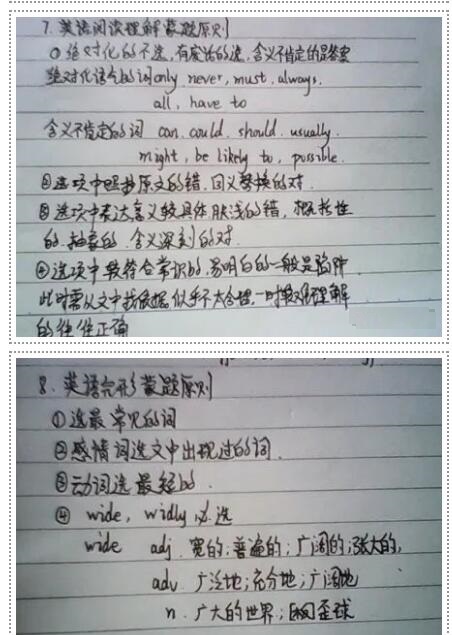 7. 英语阅读理解蒙题原则
① 绝对化的不选,有废话的选,含义不肯定的是答案
绝对化语气的词only. never, must. always.
all, have to
含义不肯定的词 can. could. should. usually.
might, be likely to, possible.
②选项中照抄原文的错.同义替换的对.
③选项中表达意义较具体肤浅的错,概括性
的.抽象的.含义深刻的对.
④选项中较符合常识的,易明白的一般是陷阱.
此时需从文中找依据,似乎不太合理,一时较难理解
的往往正确
8. 英语完形蒙题原则
①选最常见的词
②感情词选文中出现过的词.
③动词选最短的.
④ wide, widly 必选
wide adj. 宽的;普遍的;广阔的;张大的,
adv. 广泛地;充分地;广阔地
n. 广大的世界;歪球